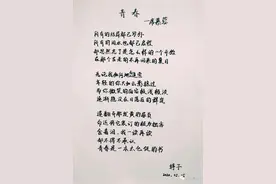 青春
一席慕容
所有的结局都已写好
所有的泪水也都已启程
却忽然忘了是怎么样的一个开始
在那个古老的不再回来的夏日
无论我如何地追索
年轻的你只如云影掠过
而你微笑的面容极浅极淡
逐渐隐没在日落后的群岚
遂翻开那发黄的扉页
命运将它装订的极为拙劣
含着泪,我一读再读
却不得不承认
青春是一本太仓促的书